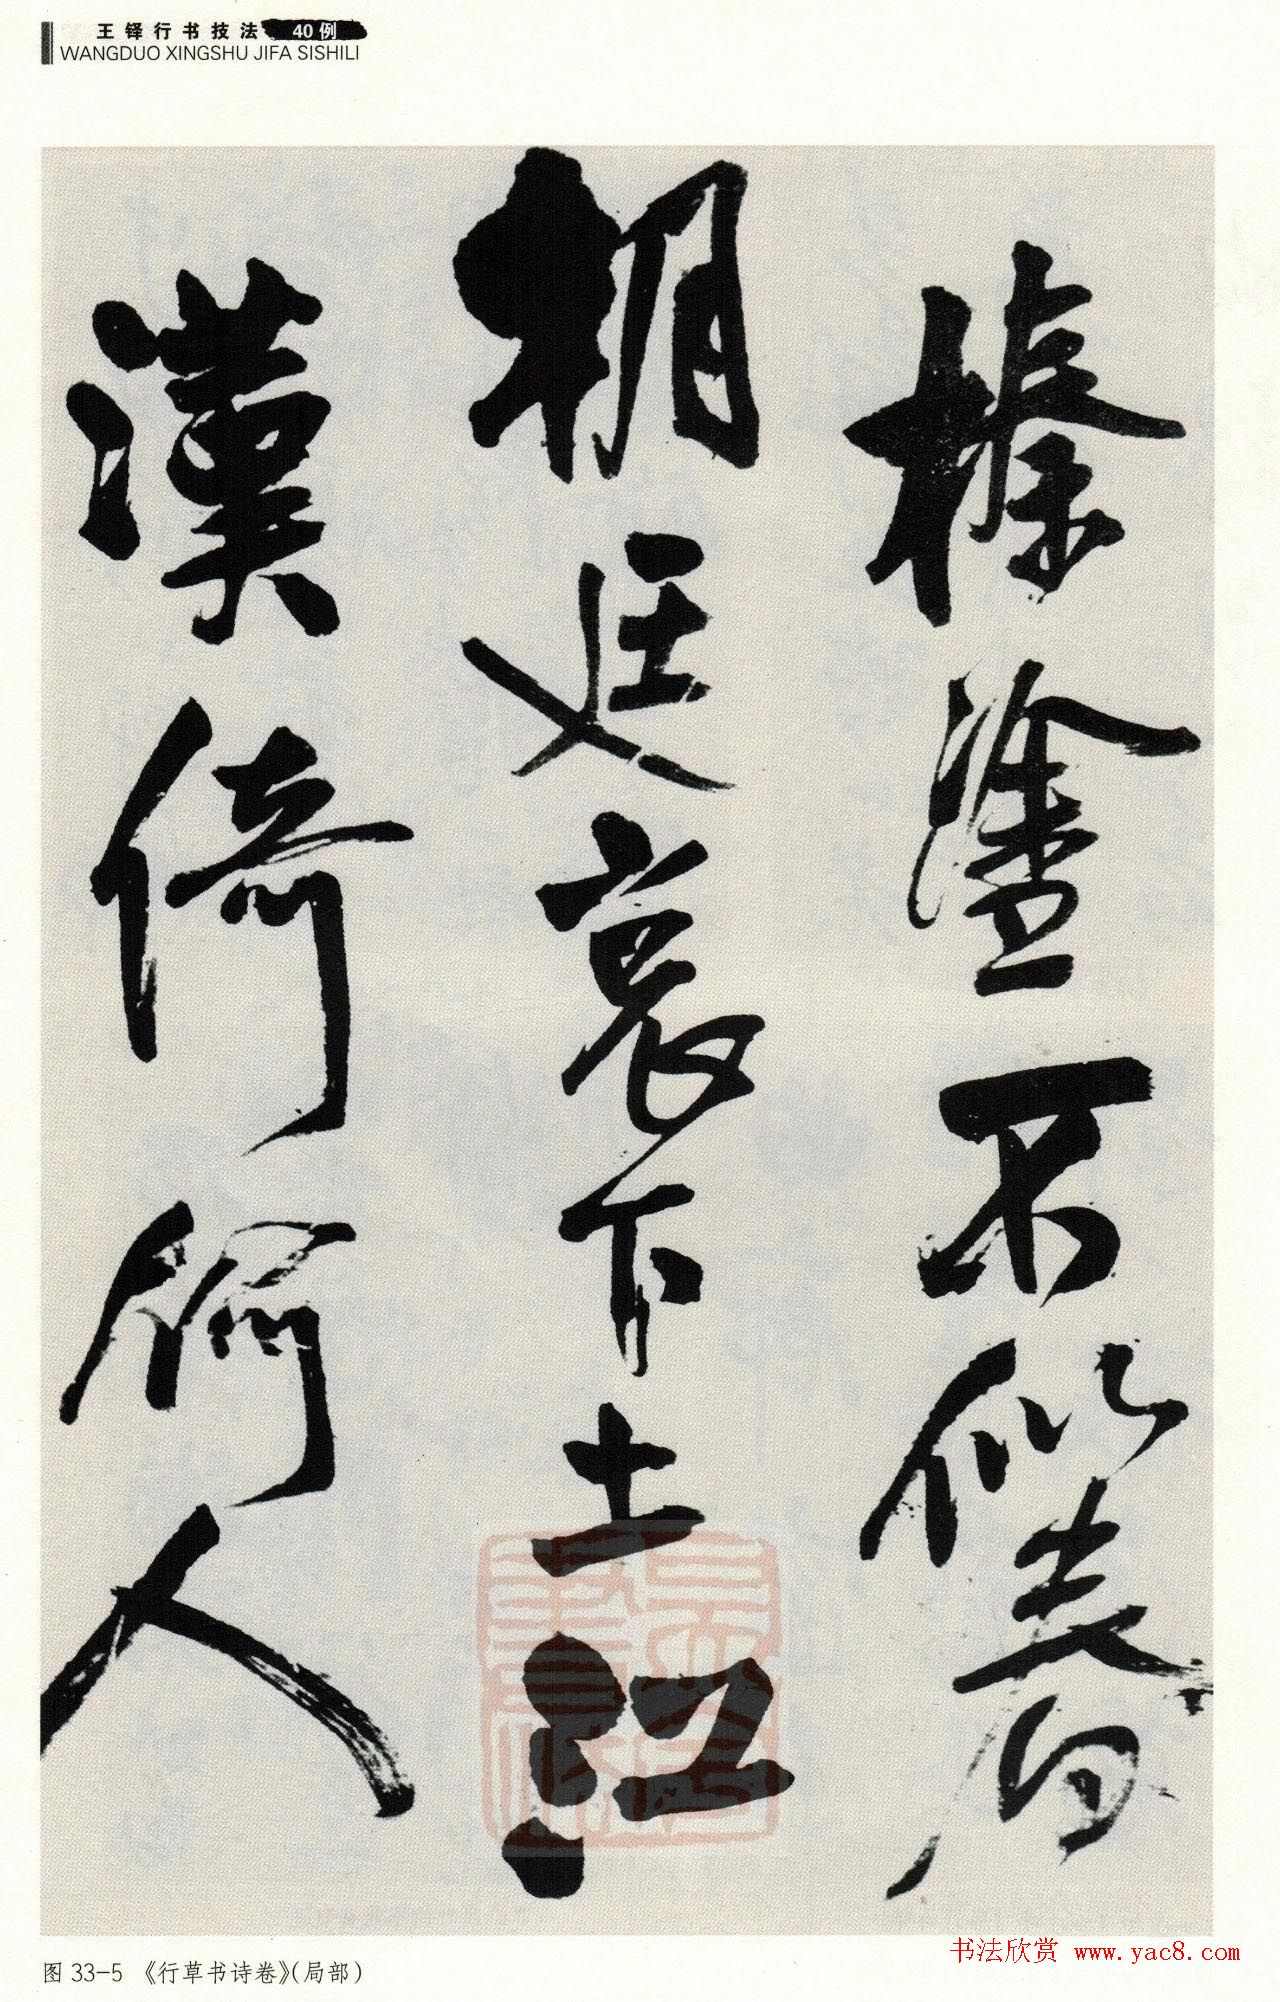 王铎行书技法 40例
WANGDUO XINGSHU JIFA SISHILI
榛塗不似舊
朝廷哀下土江
漢倚何人
图 33-5 《行草书诗卷》(局部)
书法欣赏 www.yac8.com